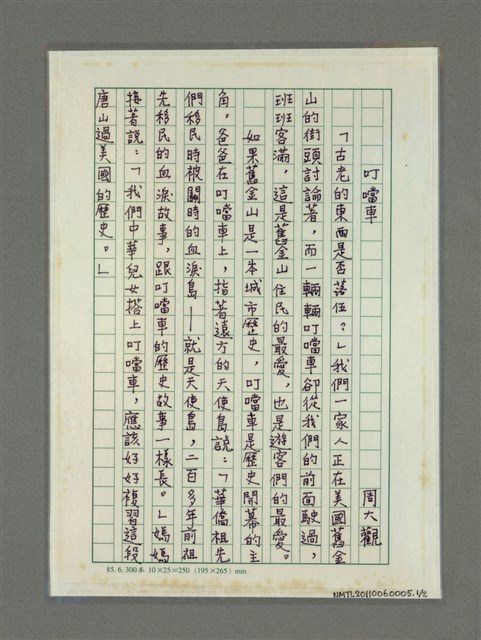 叮噹車
周大觀
「古老的東西是否落伍?」我們一家人正在美國舊金
山的街頭討論著,而一輛輛叮噹車卻從我們的前面駛過,
班班客滿,這是舊金山住民的最愛,也是遊客們的最愛。
如果舊金山是一本城市歷史,叮噹車是歷史開幕的主
角,爸爸在叮噹車上,指著遠方的天使島說:「華僑祖先
們移民時被關時的血淚島——就是天使島,二百多年前祖
先移民的血淚故事,跟叮噹車的歷史故事一樣長。」媽媽
接著說:「我們中華兒女搭上叮噹車,應該好好複習這段
唐山過美國的歷史。」
85.6.300本 10×25=250 (195×265) mm
NMTL20110060005.1/2